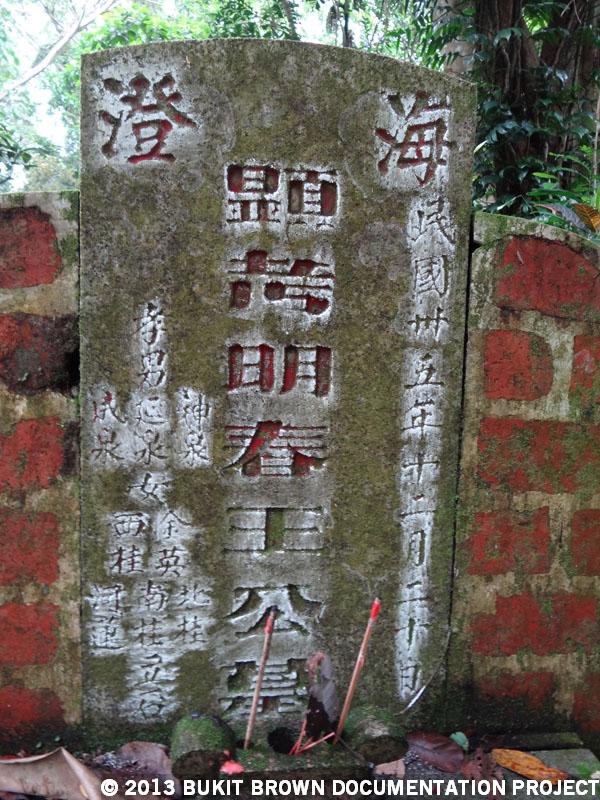 海澄
民國卅五年十二月二十日
顯考明春王公墓
孝男
神泉
延泉
女
金英
北桂
西桂
南桂
立石
© 2013 BUKIT BROWN DOCUMENTATION PROJECT